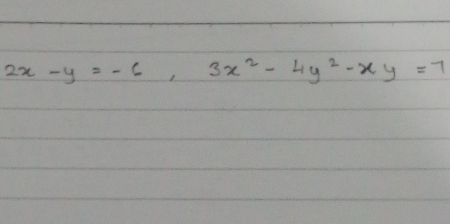 2x - y = -6 , 3x² - 4y² - xy = 7